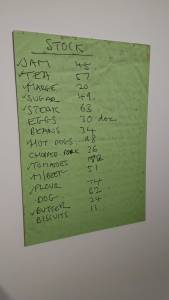 STOCK
✓JAM 45
✓TEA 57
✓MARGE 20
✓SUGAR 49
✓STEAK 63
EGGS 30 doz
BEANS 34
✓HOT DOGS 48
CHOPPED PORK 36
✓TOMATOES
✓M/BEEF 51
✓FLOUR 74
DOG 62
✓BUTTER 24
BISCUITS 11